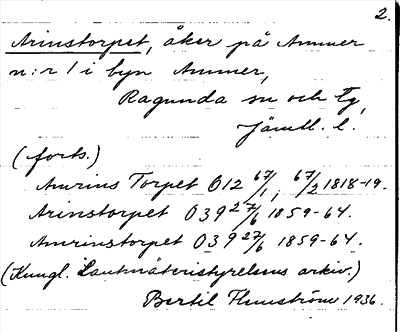 2.
Arinstorpet, åker på Ammer
n:r 1 i byn Ammer,
Ragunda sn och tg,
Jämtl. l.
(forts.)
Amrins Torpet O12 67/1, 67/2 1818-19.
Arinstorpet O39 27/6 1859-64.
Amrinstorpet O39 27/6 1859-64.
(Kungl. Lantmäteristyrelsens arkiv.)
Bertil Flemström 1936.